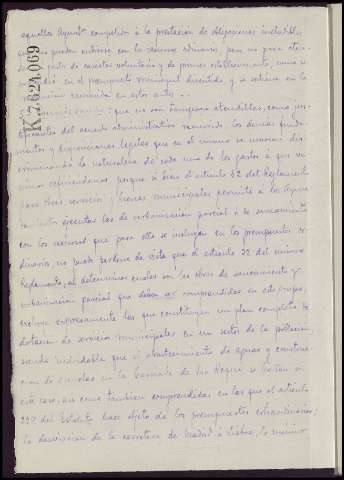 aquellos Ayunt.º compelidos á la prestación de obligaciones ineludibles
pueden cubrirse con los recursos ordinarios, pero no para aten-
gastos de carácter voluntario y de primer establecimiento, como se
en el presupuesto municipal discutido y se sostiene en la
resolución recurrida en estos autos.
Considerando: que no son tampoco atendibles, como jus-
tificantes del acuerdo administrativo recurrido, los demás funda-
mentos y disposiciones legales que en el mismo se invocan
la naturaleza de cada uno de los gastos á que se
vienen refiriendo, porque si bien el artículo 52 del Reglamento
para obras, servicios y bienes municipales permite á los Ayun-
tamientos ejecutar las de urbanización parcial ó de saneamiento
con los recursos que para ello se incluyan en los presupuestos or-
dinarios, no puede perderse de vista que el artículo 39 del mismo
Reglamento, al determinar cuales son las obras de saneamiento y
urbanización parcial que deben ser comprendidas en este grupo,
excluye expresamente las que constituyen un plan completo de
dotación de servicios municipales en un sector de la población,
siendo indudable que el abastecimiento de aguas y construc-
ción de escuelas en la barriada de San Roque se hallan en
este caso, así como también comprendidas en las que el artículo
299 del Estatuto hace objeto de los presupuestos extraordinarios;
la desviación de la carretera de Madrid á Lisboa, lo mismo
K.7.624.069